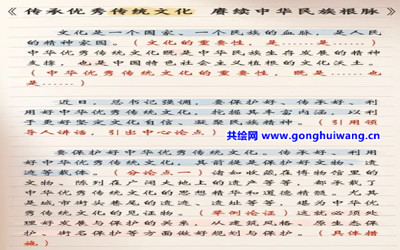 《传承优秀传统文化 赓续中华民族根脉》
文化是一个国家、一个民族的血脉，是人民
的精神家园。（文化的重要性，是……是……）
中华优秀传统文化既是中华民族生存发展的精神
支撑，也是中国特色社会主义植根的文化沃土。
（中华优秀传统文化的重要性，既是……也
是……）
近日，总书记强调，要保护好、传承好、利
用好中华优秀传统文化，挖掘其丰富内涵，以利
于更好坚定文化自信、凝聚民族精神（引用领
导人讲话，引出中心论点）
共绘网 www.gonghuiwang.cn
要保护好中华优秀传统文化。传承好、利用
好中华优秀传统文化，其前提是保护好文物、遗
迹等载体。（分论点一）诸如收藏在博物馆里的
文物、陈列在广阔大地上的遗产等等，都承载了
中华优秀传统文化的思想精华和道德精髓。尤其
是城市街头巷尾的遗迹、遗址等等，堪为中华优
秀传统文化的见证物。（举例论证）这就必须处
理好发展与保护的关系，从建筑风格、原生态保
护、街名保护等方面做好规划与保护。（具体措
施）